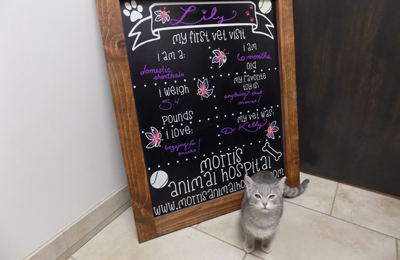 Lily
my first vet visit
i am a:
domestic
shorthair
i am
6 months
old
i weigh
5.4
Pounds
my favorite
toy is:
anything that
moves!
i love:
my vet was:
Dr. Kelly
morris
animal hospital
www.morrisanimalho